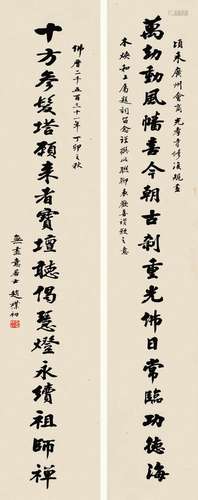 萬劫動風幡喜今朝古刹重光佛日常臨功德海
頃來廣州會商光孝寺修復規畫
本煥和上屬題詞留念謹撰此聯聊表歡喜讚歎之意
佛曆二千五百三十一年丁卯之秋
十方參髮塔願來者寶壇聽偈慧燈永續祖師禪
無盡意居士趙樸初